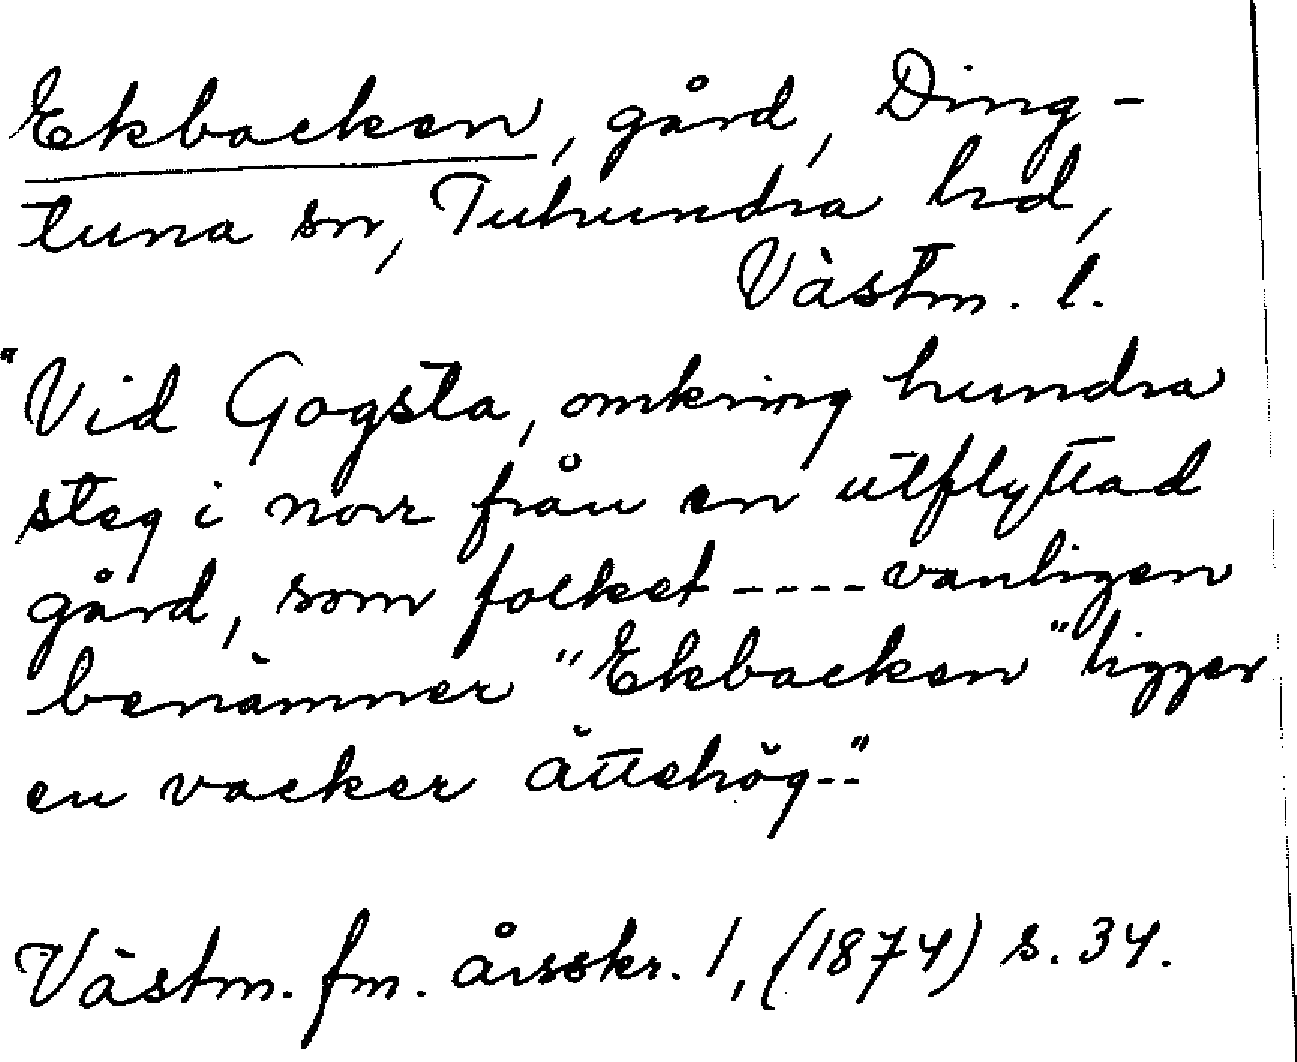 Ekbacken, gård, Ding-
tuna sn, Tuhundra hd,
Västm. l.
"Vid Gogsta, omkring hundra
steg i norr från en utflyttad
gård, som folket ---- vanligen
benämner "Ekbacken" ligger
en vacker ättehög--"
Västm. fm. årsskr. 1, (1874) s. 34.